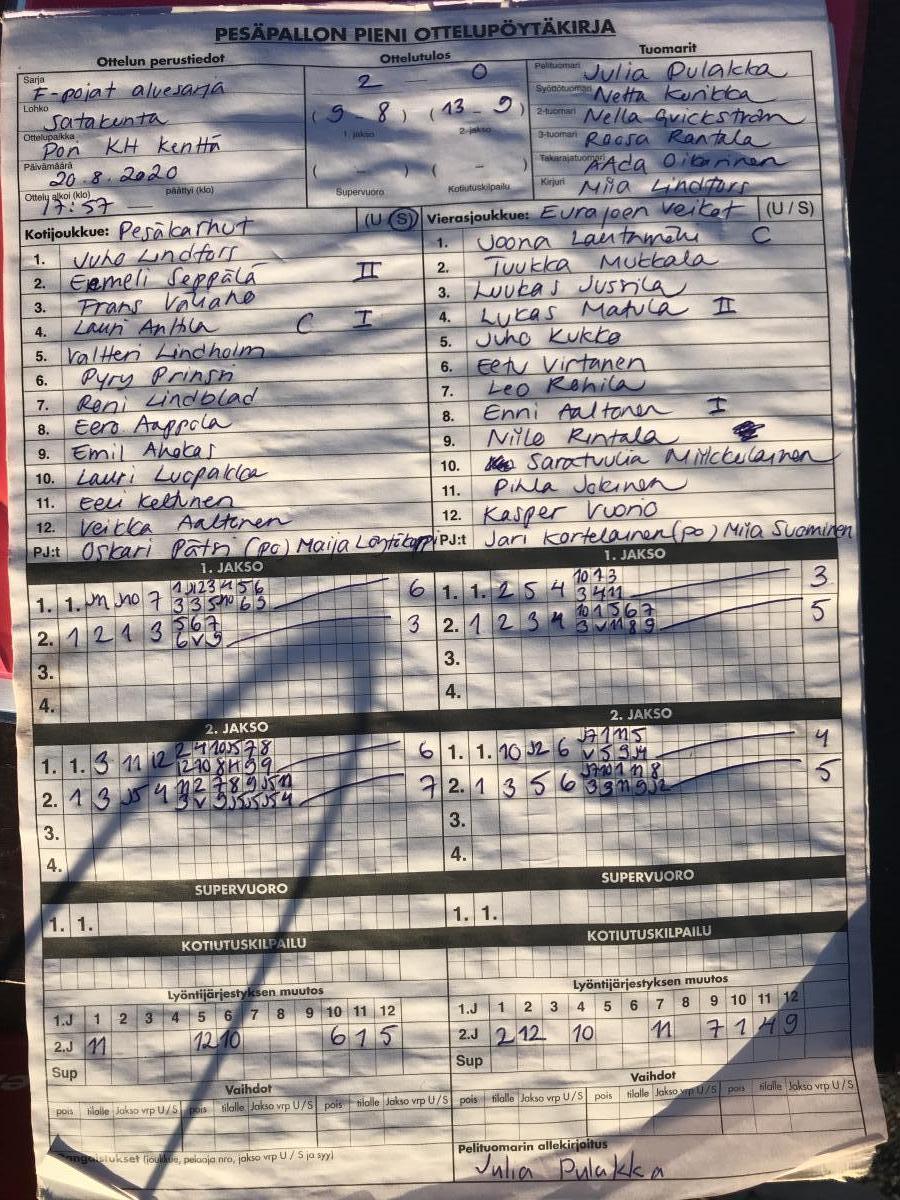 PESÄPALLON PIENI OTTELUPÖYTÄKIRJA
Ottelun perustiedot
Sarja
F-pojat aluesarja
Lohko
Satakunta
Ottelupaikka
Pori KH Kenttä
Päivämäärä
20.8.2020
Ottelu alkoi (klo) päättyi (klo)
17:57
Ottelutulos
2 - 0
(9-8) (13-9)
1. jakso 2. jakso
( - ) ( - )
Supervuoro Kotiutuskilpailu
Tuomarit
Pelituomari Julia Pulakka
Syöttötuomari Netta Kurikka
2-tuomari Nella Qvickström
3-tuomari Roosa Rantala
Takarajatuomari AAda Oikarinen
Kirjuri Miia Lindfors
Kotijoukkue: Pesäkarhut (U/S)
1. Juho Lindfors
2. Eemeli Seppälä II
3. Frans
4. Lauri Anttila C I
5. Valtteri Lindholm
6. Pyry Prinssi
7. Roni Lindblad
8. Eero Aappola
9. Emil Ahokas
10. Lauri Luopakka
11. Eeli Keltinen
12. Veikka Aaltonen
PJ:t Oskari Pätsi (po) Maija
Vierasjoukkue: Eurajoen Veikot (U/S)
1. Joona Lautamäki C
2. Tuukka Mukkala
3. Luukas Jussila
4. Lukas Matula II
5. Juho Kukko
6. Eetu Virtanen
7. Leo Rohila
8. Enni Aaltonen I
9. Niilo Rintala
10. Saratuulia
11. Pihla Jokinen
12. Kasper Vuorio
PJ:t Jari Kortelainen (po) Miia Suominen
1. JAKSO
1. 1. 7 6
2. 1 2 1 3 5 6 7 3
6 V 9
3.
4.
1. JAKSO
1. 1. 2 5 4 10 1 3 3
3 4 11
2. 1 2 3 4 10 1 5 6 7 5
3 V 11 8 9
3.
4.
2. JAKSO
1. 1. 3 11 12 6
2. 1 3 J5 4 7
3.
4.
2. JAKSO
1. 1. 10 J2 6 4
2. 1 3 5 6 5
3.
4.
SUPERVUORO
1. 1.
SUPERVUORO
1. 1.
KOTIUTUSKILPAILU
KOTIUTUSKILPAILU
Lyöntijärjestyksen muutos
1.J 1 2 3 4 5 6 7 8 9 10 11 12
2.J 11 12 10 6 1 5
Sup
Lyöntijärjestyksen muutos
1.J 1 2 3 4 5 6 7 8 9 10 11 12
2.J 2 12 10 11 7 1 4 9
Sup
Vaihdot
pois tilalle Jakso vrp U/S pois tilalle Jakso vrp U/S pois tilalle Jakso vrp U/S
Vaihdot
pois tilalle Jakso vrp U/S pois tilalle Jakso vrp U/S pois tilalle Jakso vrp U/S
Rangaistukset (joukkue, pelaaja nro, jakso vrp U / S ja syy)
Pelituomarin allekirjoitus
Julia Pulakka